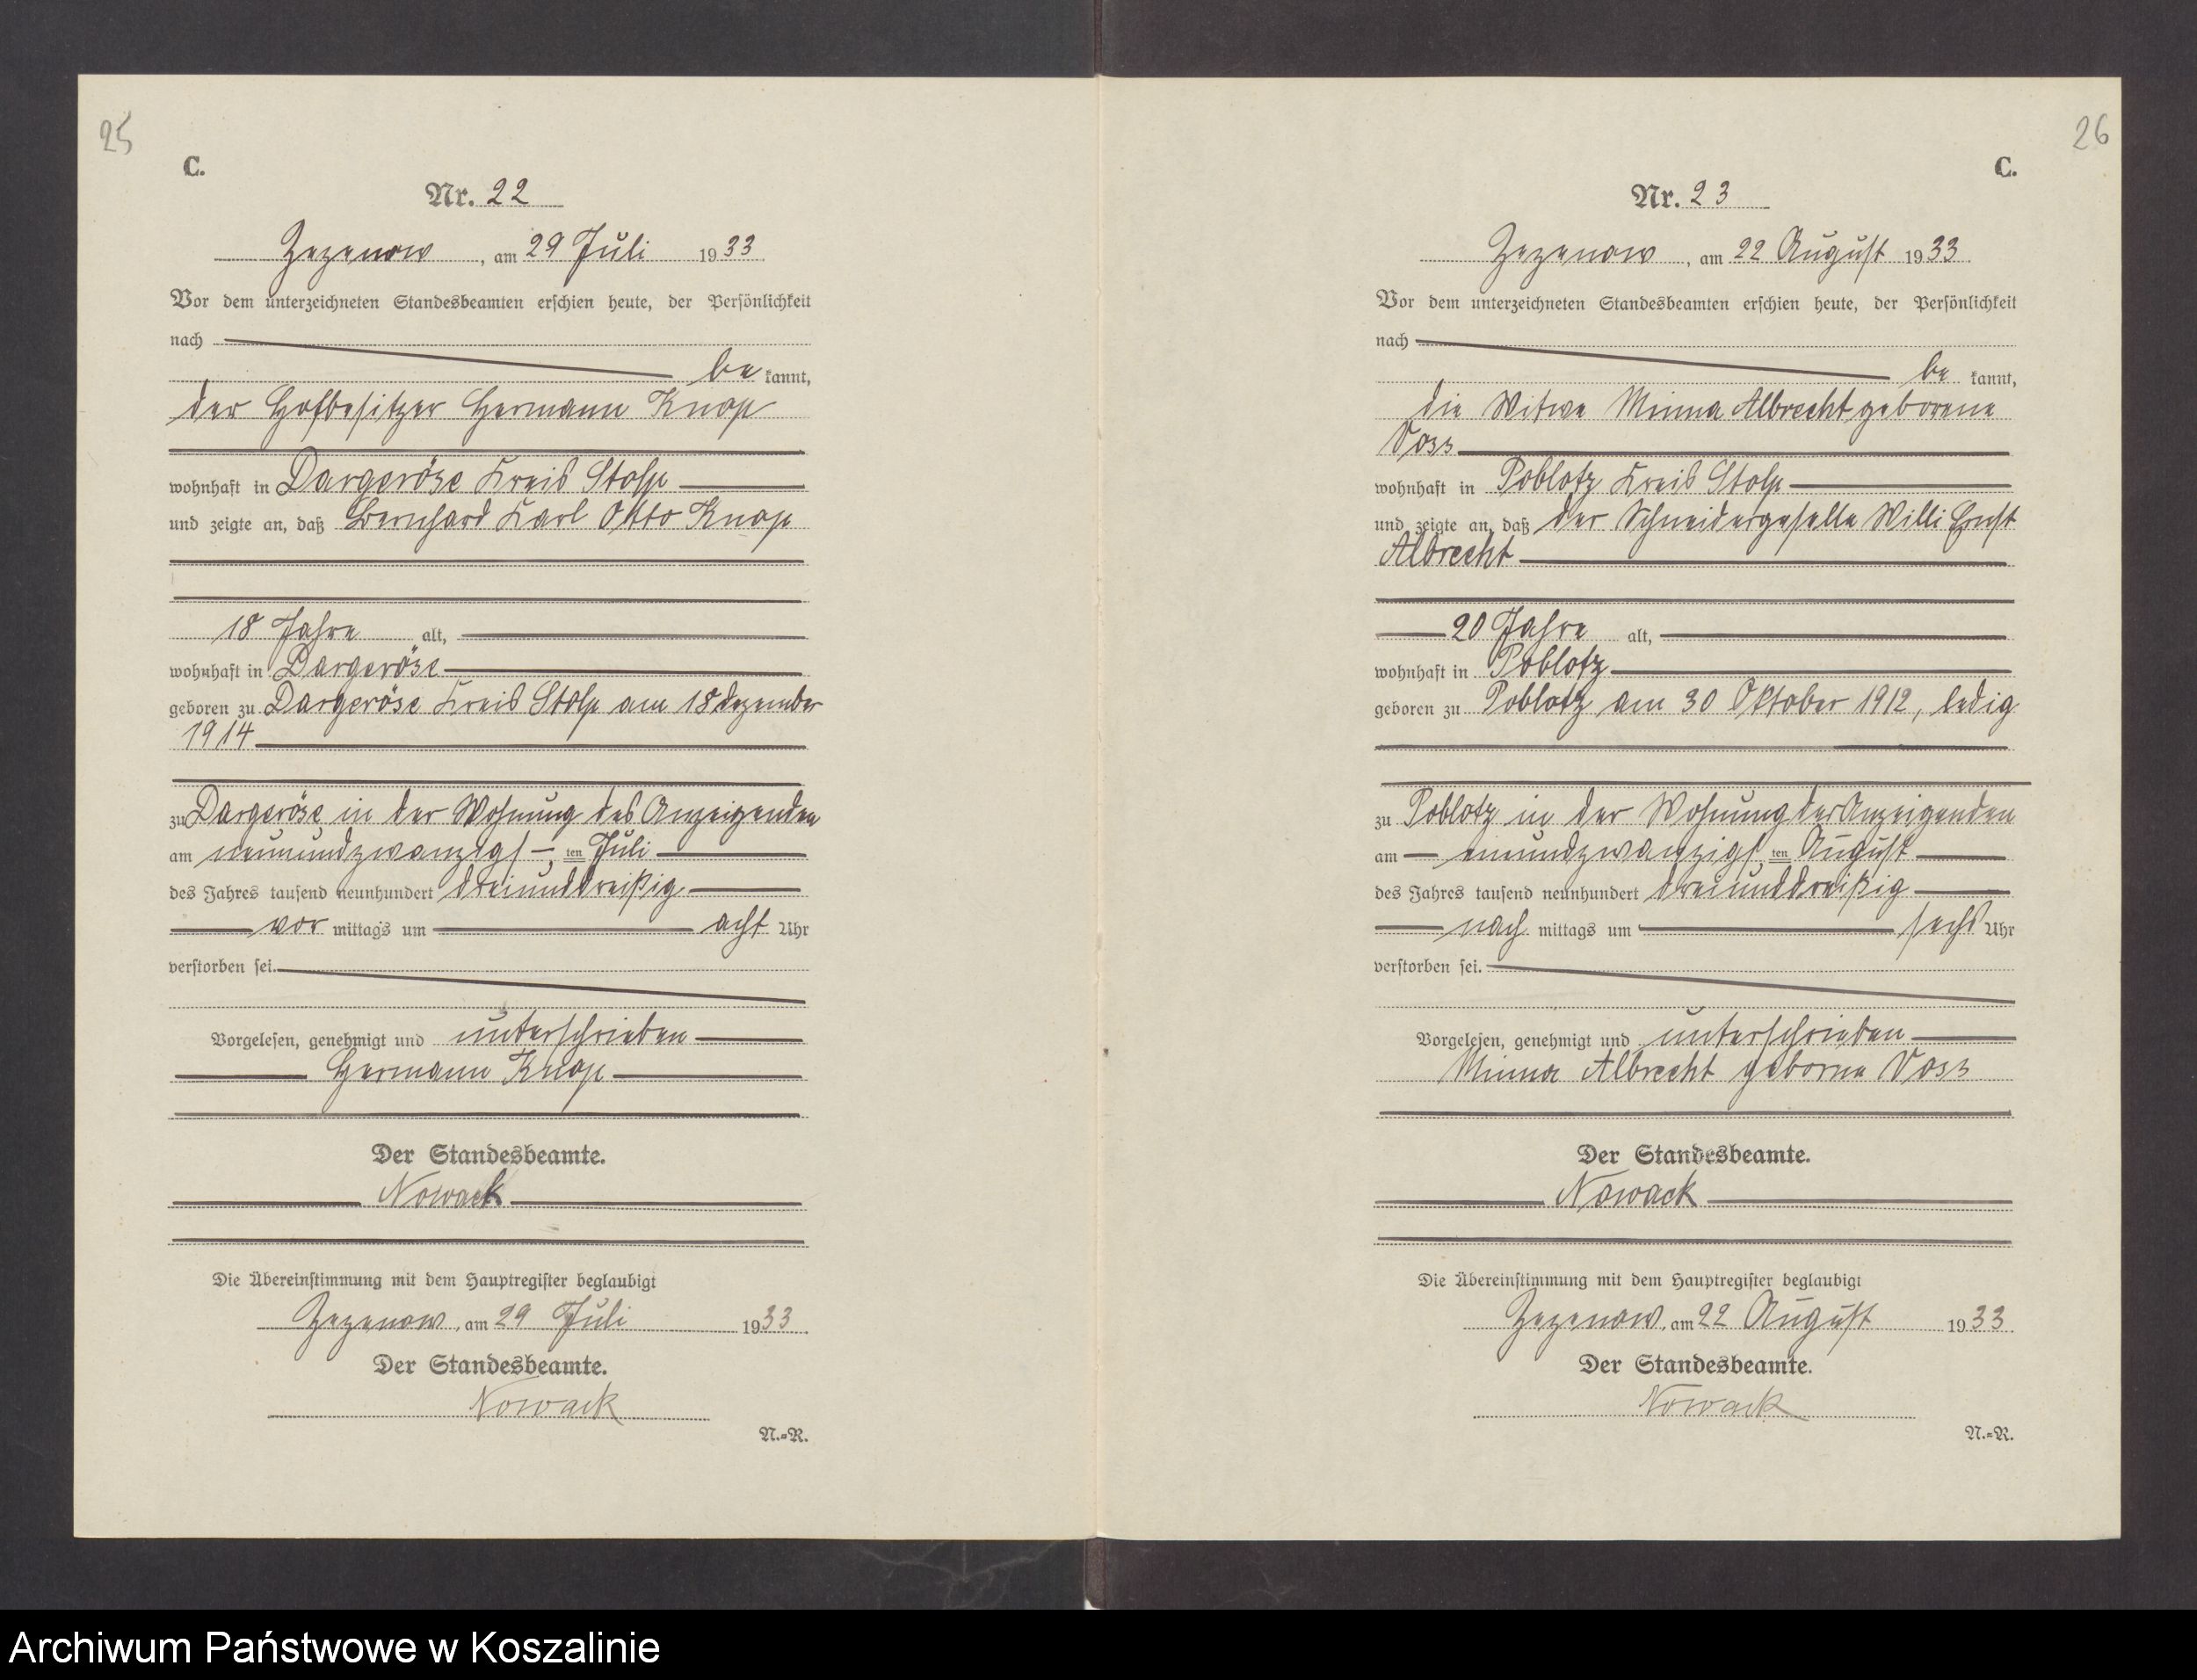 25
C.
Nr. 22
Zezenow, am 29 Juli 1933
Vor dem unterzeichneten Standesbeamten erschien heute, der Persönlichkeit
nach
be kannt,
der Hofbesitzer Hermann Knop
wohnhaft in Dargeröse Kreis Stolp
und zeigte an, daß Bernhard Karl Otto Knop
18 Jahre alt,
wohnhaft in Dargeröse
geboren zu Dargeröse Kreis Stolp am 18 Dezember
1914
zu Dargeröse in der Wohnung des Anzeigenden
am neunundzwanzigsten Juli
des Jahres tausend neunhundert dreiunddreißig
vor mittags um acht Uhr
verstorben sei.
Vorgelesen, genehmigt und unterschrieben
Hermann Knop
Der Standesbeamte.
Nowack
Die Übereinstimmung mit dem Hauptregister beglaubigt
Zezenow, am 29 Juli 1933
Der Standesbeamte.
Nowack
N.=R.
26
C.
Nr. 23
Zezenow, am 22 August 1933
Vor dem unterzeichneten Standesbeamten erschien heute, der Persönlichkeit
nach
be kannt,
die Witwe Minna Albrecht geborene
Voss
wohnhaft in Poblotz Kreis Stolp
und zeigte an, daß der Schneidergeselle Willi Ernst
Albrecht
20 Jahre alt,
wohnhaft in Poblotz
geboren zu Poblotz am 30 Oktober 1912, ledig
zu Poblotz in der Wohnung der Anzeigenden
am einundzwanzigsten August
des Jahres tausend neunhundert dreiunddreißig
nach mittags um sechs Uhr
verstorben sei.
Vorgelesen, genehmigt und unterschrieben
Minna Albrecht geborne Voss
Der Standesbeamte.
Nowack
Die Übereinstimmung mit dem Hauptregister beglaubigt
Zezenow, am 22 August 1933
Der Standesbeamte.
Nowack
N.=R.
Archiwum Państwowe w Koszalinie